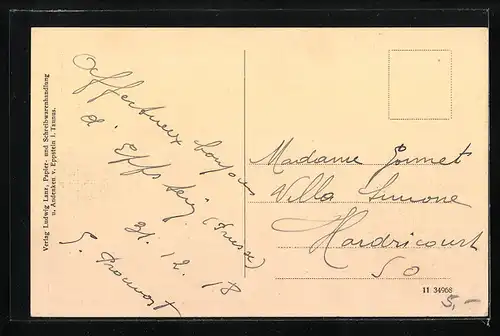 Verlag Ludwig Lanz, Papier- und Schreibwarenhandlung
u. Andenken v. Eppstein i. Taunus.
Affectueux
d'Eppstein (Prusse)
31.12.18
Madame
Villa Simone
Hardricourt
SO
11 34968
5,-